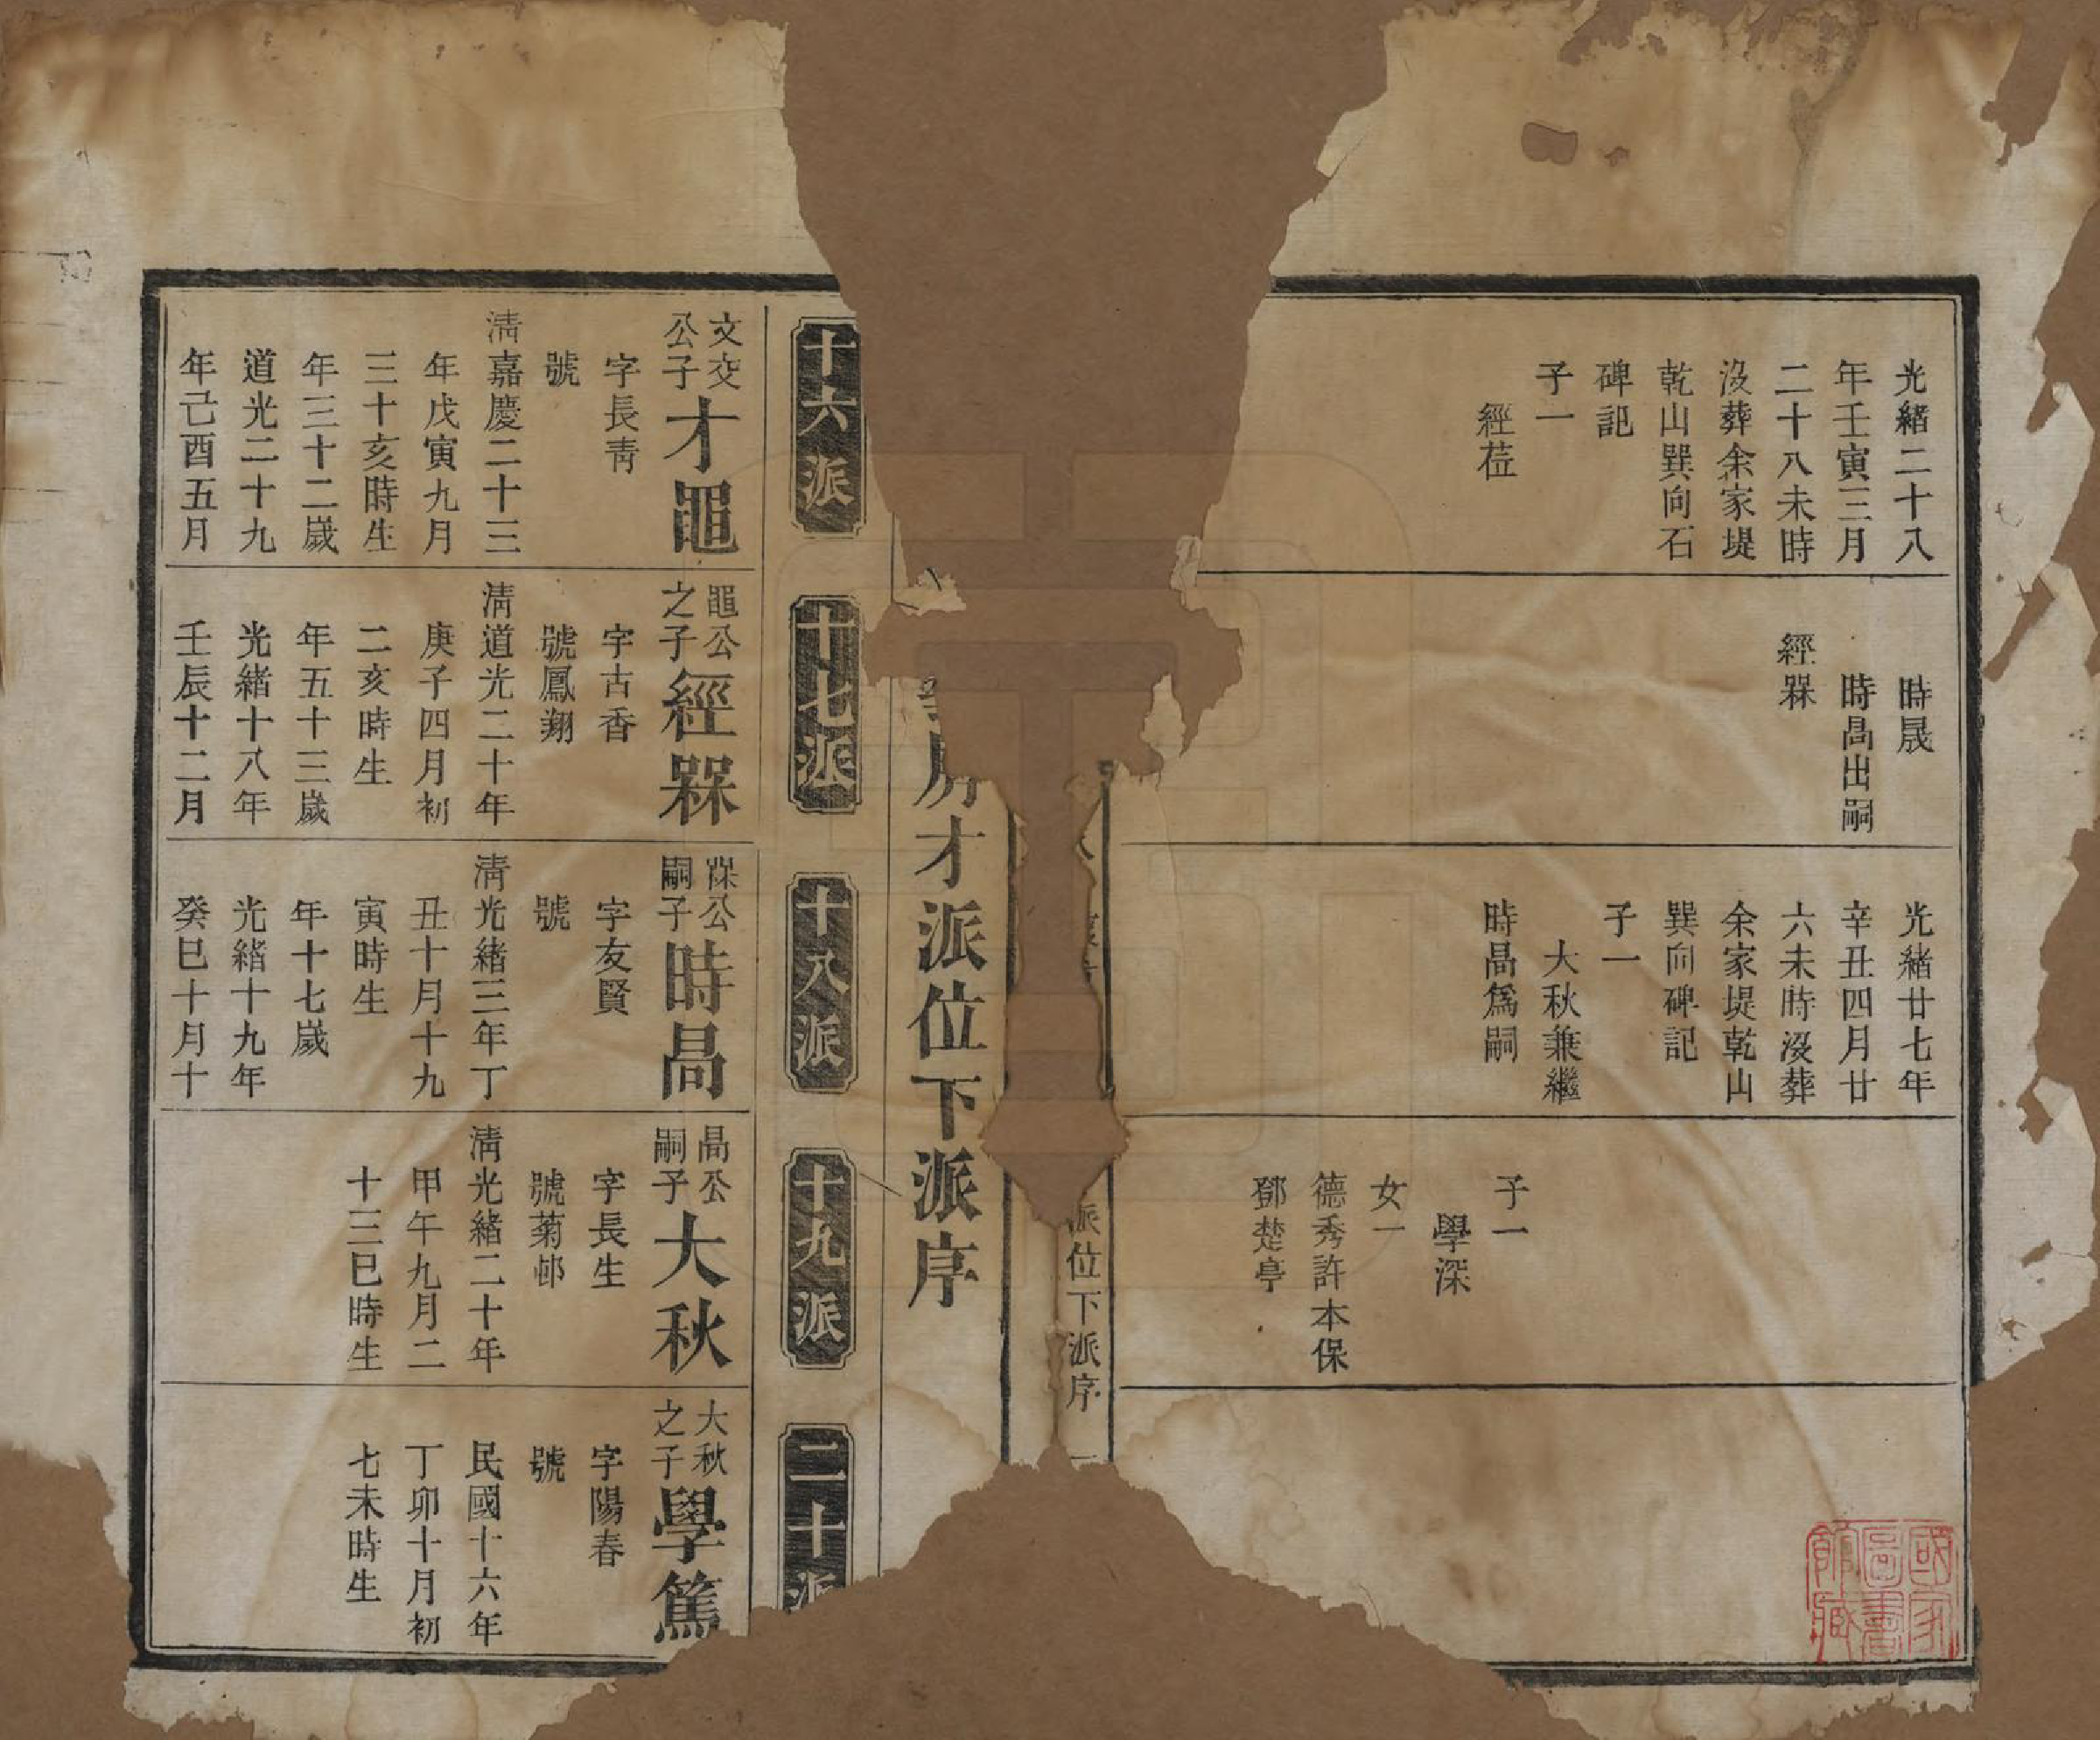 光緒二十八
年壬寅三月
二十八未時
沒葬余家堤
乾山巽向石
碑記
子一
經莅
時晟
時咼出嗣
經槑
光緒廿七年
辛丑四月廿
六未時沒葬
余家堤乾山
巽向碑記
子一
大秋兼繼
時咼爲嗣
子一
學深
女一
德秀許本保
鄧楚亭
國家
圖書
館藏
派位下派序
房才派位下派序
十六派
十七派
十八派
十九派
二十派
文交
公子
才
字長青
號
清嘉慶二十三
年戊寅九月
三十亥時生
年三十二歲
道光二十九
年己酉五月
公
之子
經槑
字古香
號鳳翔
清道光二十年
庚子四月初
二亥時生
年五十三歲
光緒十八年
壬辰十二月
槑公
嗣子
時咼
字友賢
號
清光緒三年丁
丑十月十九
寅時生
年十七歲
光緒十九年
癸巳十月十
咼公
嗣子
大秋
字長生
號菊邨
清光緒二十年
甲午九月二
十三巳時生
大秋
之子
學篤
字陽春
號
民國十六年
丁卯十月初
七未時生